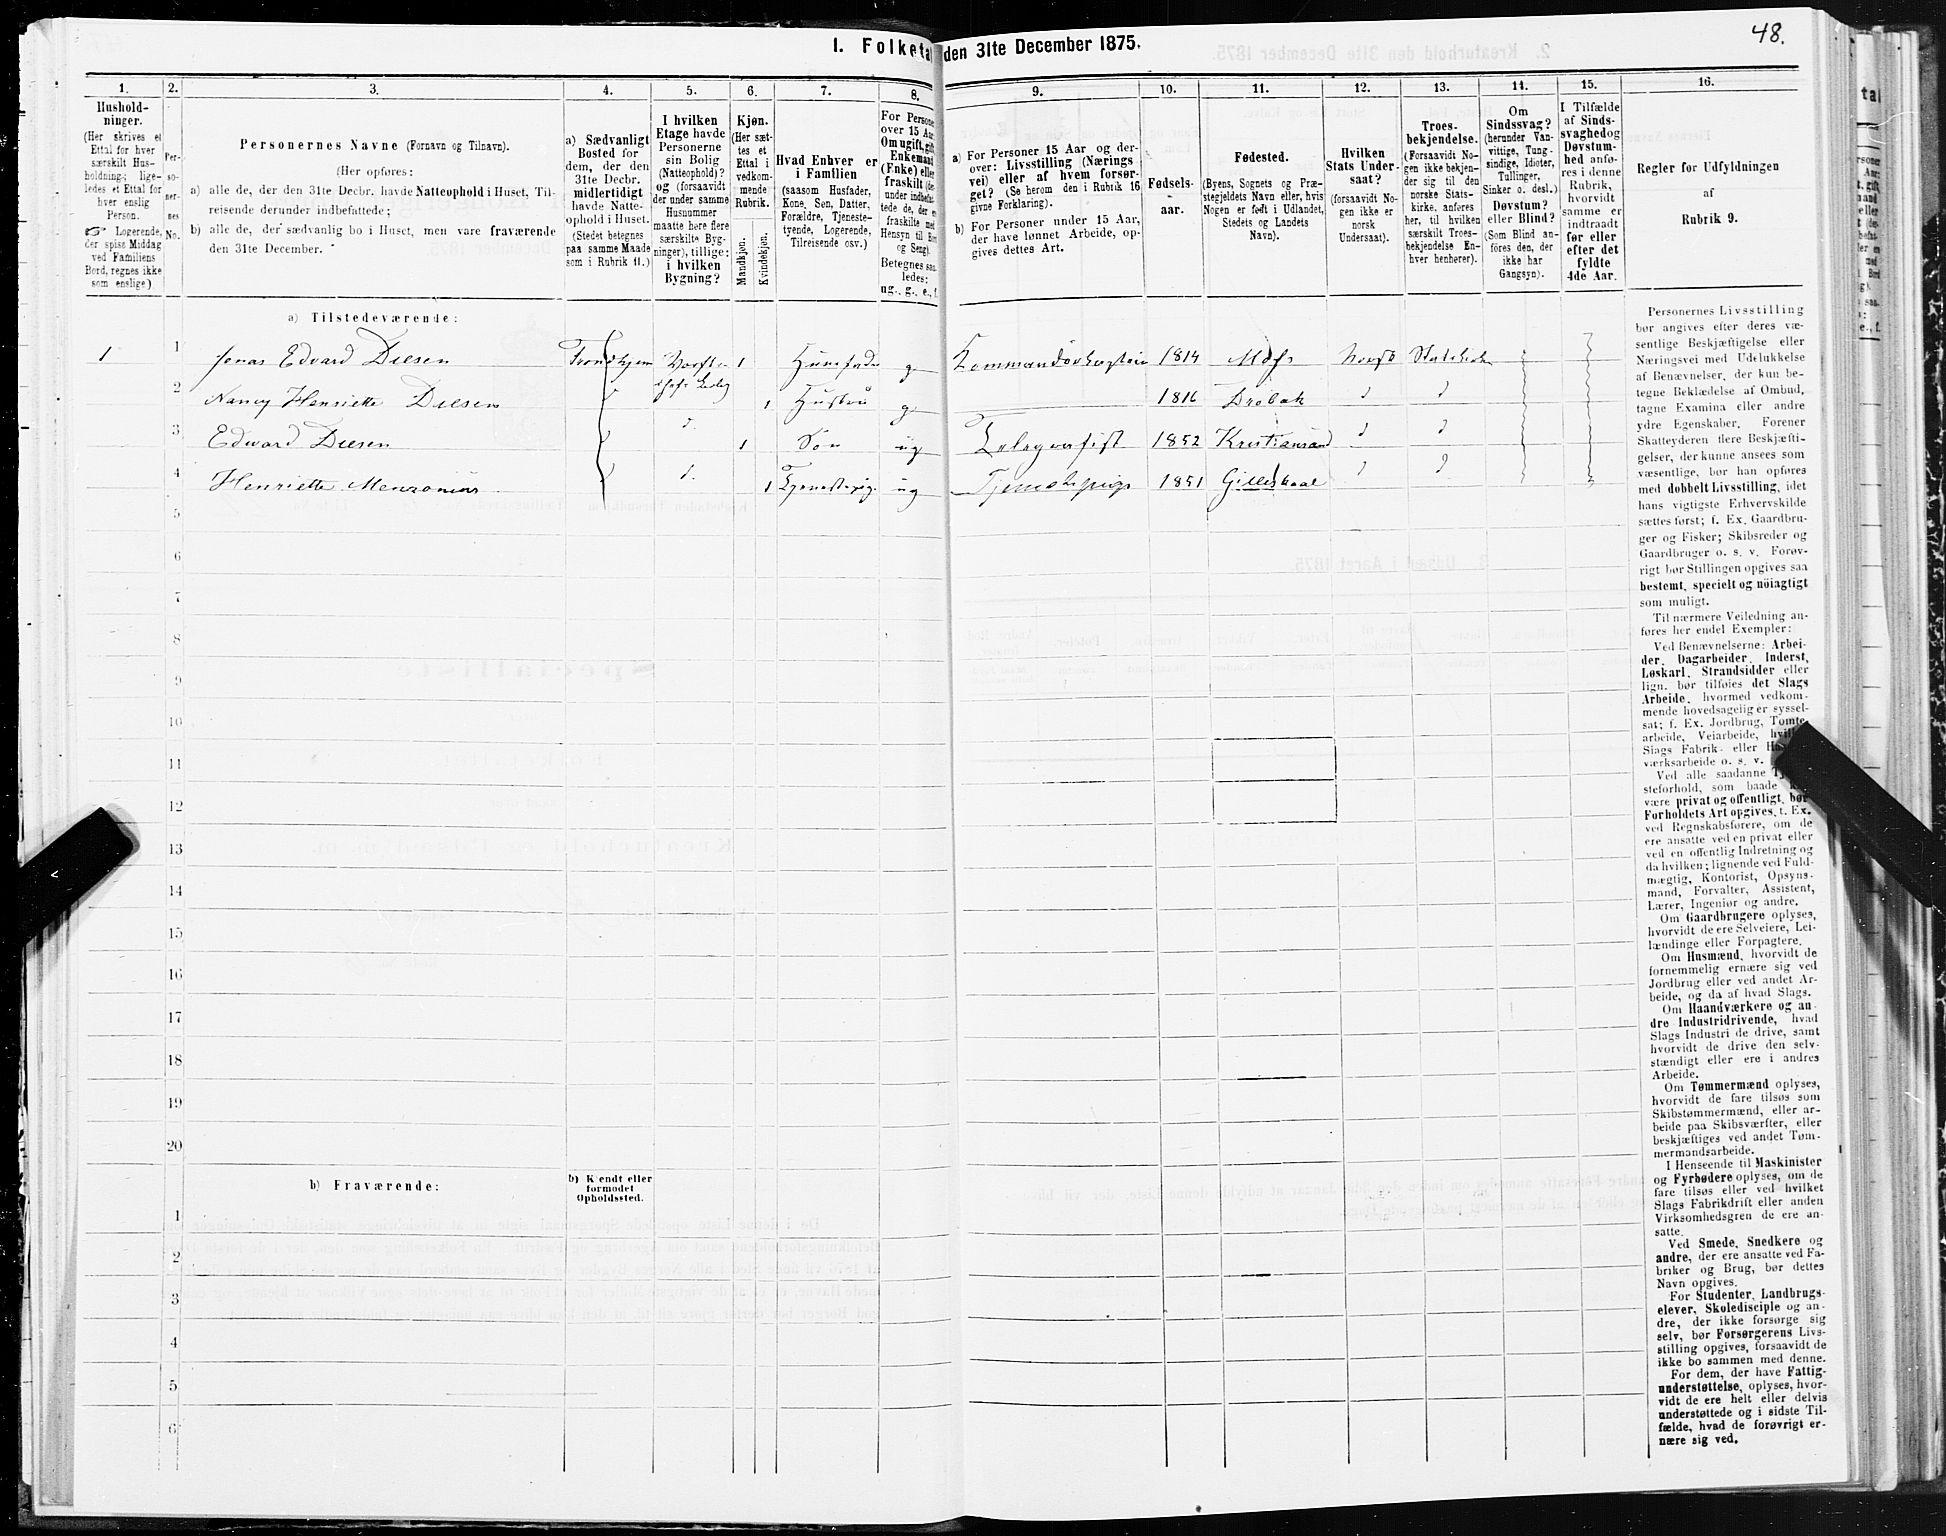 48.
I. Folketal den 31te December 1875.
1. 2. 3. 4. 5. 6. 7. 8. 9. 10. 11. 12. 13. 14. 15. 16.
Hushold-
ninger.
(Her skrives et
Ettal for hver
særskilt Hus-
holdning; lige-
ledes et Ettal for
hver enslig
Person.
☞ Logerende,
der spise Middag
ved Familiens
Bord, regnes ikke
som enslige.)
Per-
so-
ner-
nes
No.
Personernes Navne (Fornavn og Tilnavn).
(Her opføres:
a) alle de, der den 31te Decbr. havde Natteophold i Huset, Til-
reisende derunder indbefattede;
b) alle de, der sædvanlig bo i Huset, men vare fraværende
den 31te December.
a) Sædvanligt
Bosted for
dem, der den
31te Decbr.
midlertidigt
havde Natte-
ophold i Huset.
(Stedet betegnes
paa samme Maade
som i Rubrik 11.)
I hvilken
Etage havde
Personerne
sin Bolig
(Natteophold)?
og (forsaavidt
der under samme
Husnummer
maatte høre flere
særskilte Byg-
ninger), tillige:
i hvilken
Bygning?
Kjøn.
(Her sæt-
tes et
Ettal i
vedkom-
mende
Rubrik.
Mandkjøn.
Kvindekjøn.
Hvad Enhver er
i Familien
(saasom Husfader,
Kone, Søn, Datter,
Forældre, Tjeneste-
tyende, Logerende,
Tilreisende osv.)
For Persone
over 15 Aar
Om ugift, gift
Enkemand
(Enke) eller
fraskilt (de
under indbefat-
tede de, der e
fraskilte med
Hensyn til Bo
og Seng).
Betegnes saa-
ledes:
ug., g., e., f.
a) For Personer 15 Aar og der-
over: Livsstilling (Nærings-
vei) eller af hvem forsør-
get? (Se herom den i Rubrik 16
givne Forklaring).
b) For Personer under 15 Aar,
der have lønnet Arbeide, op-
gives dettes Art.
Fødsels-
aar.
Fødested.
(Byens, Sognets og Præ-
stegjeldets Navn eller, hvis
Nogen er født i Udlandet,
Stedets og Landets
Navn).
Hvilken
Stats Under-
saat?
(forsaavidt No-
gen ikke er
norsk
Undersaat).
Troes-
bekjendelse.
(Forsaavidt No-
gen ikke bekjen-
der sig til den
norske Stats-
kirke, anføres
her, til hvilken
særskilt Troes-
bekjendelse En-
hver henhører).
Om
Sindssvag?
(herunder Van-
vittige, Tung-
sindige, Idioter,
Tullinger,
Sinker o. desl.)
Døvstum?
eller Blind?
(Som Blind an-
føres den, der
ikke har
Gangsyn).
I Tilfælde
af Sinds-
svaghed og
Døvstum-
hed anfø-
res i denne
Rubrik,
hvorvidt
samme er
indtraadt
før eller
efter det
fyldte
4de Aar.
Regler for Udfyldningen
af
Rubrik 9.
a) Tilstedeværende:
1 1 Jonas Edvard Diesen Trondhjem 1 Husfader g Kommandørkaptein 1814 Moss Norsk Statskirken
2 Nancy Henriette Diesen 1 Hustru g 1816 Drøbak
3 Edward Diesen 1 Søn ug Telegrafist 1852 Kristiansand
4 Henriette 1 Tjenestepige ug Tjenestepige 1851 Gilleskaal
5
6
7
8
9
10
11
12
13
14
15
16
17
18
19
20
b) Fraværende:
b) Kendt eller
formodet
Opholdssted.
1
2
3
4
5
6
Personernes Livsstilling
bør angives efter deres væ-
sentlige Beskjæftigelse eller
Næringsvei med Udelukkelse
af Benævnelser, der kun be-
tegne Beklædelse af Ombud,
tagne Examina eller andre
ydre Egenskaber. Forener
Skatteyderen flere Beskjæfti-
gelser, der kunne ansees som
væsentlige, bør han opføres
med dobbelt Livsstilling, idet
hans vigtigste Erhvervskilde
sættes først; f. Ex. Gaardbru-
ger og Fisker; Skibsreder og
Gaardbruger o. s. v. Forøv-
rigt bør Stillingen opgives saa
bestemt, specielt og nöiagtigt
som muligt.
Til nærmere Veiledning an-
føres her endel Exempler:
Ved Benævnelserne: Arbei-
der, Dagarbeider, Inderst,
Løskarl, Strandsidder eller
lign. bør tilføies det Slags
Arbeide, hvormed vedkom-
mende hovedsagelig er syssel-
sat; f. Ex. Jordbrug, Tomte-
arbeide, Veiarbeide, hvilket
Slags Fabrik- eller
værksarbeide o. s. v.
Ved alle saadanne
steforhold, som baade
være privat og offentligt, bør
Forholdets Art opgives, t. Ex.
ved Regnskabsførere, om de
ere ansatte ved en privat eller
ved en offentlig Indretning og
da hvilken; lignende ved Fuld-
mægtig, Kontorist, Opsyns-
mand, Forvalter, Assistent,
Lærer, Ingeniør og andre.
Om Gaardbrugere oplyses,
hvorvidt de ere Selveiere, Lei-
lændinge eller Forpagtere.
Om Husmænd, hvorvidt de
fornemmelig ernære sig ved
Jordbrug eller ved andet Ar-
beide, og da af hvad Slags.
Om Haandværkere og an-
dre Industridrivende, hvad
Slags Industri de drive, samt
hvorvidt de drive den selv-
stændigt eller ere i andres
Arbeide.
Om Tømmermænd oplyses,
hvorvidt de fare tilsøs som
Skibstømmermænd, eller ar-
beide paa Skibsværfter, eller
beskjæftiges ved andet Tøm-
mermandsarbeide.
I Henseende til Maskinister
og Fyrbødere oplyses, om de
fare tilsøs eller ved hvilket
Slags Fabrikdrift eller anden
Virksomhedsgren de ere an-
satte.
Ved Smede, Snedkere og
andre, der ere ansatte ved Fa-
briker og Brug, bør dettes
Navn opgives.
For Studenter, Landbrugs-
elever, Skoledisciple og an-
dre, der ikke forsørge sig
selv, bør Forsørgerens Livs-
stilling opgives, forsaavidt de
ikke bo sammen med denne.
For dem, der have Fattig-
understøttelse, oplyses, hvor-
vidt de ere helt eller delvis
understøttede og i sidste Til-
fælde, hvad de forøvrigt er-
nære sig ved.